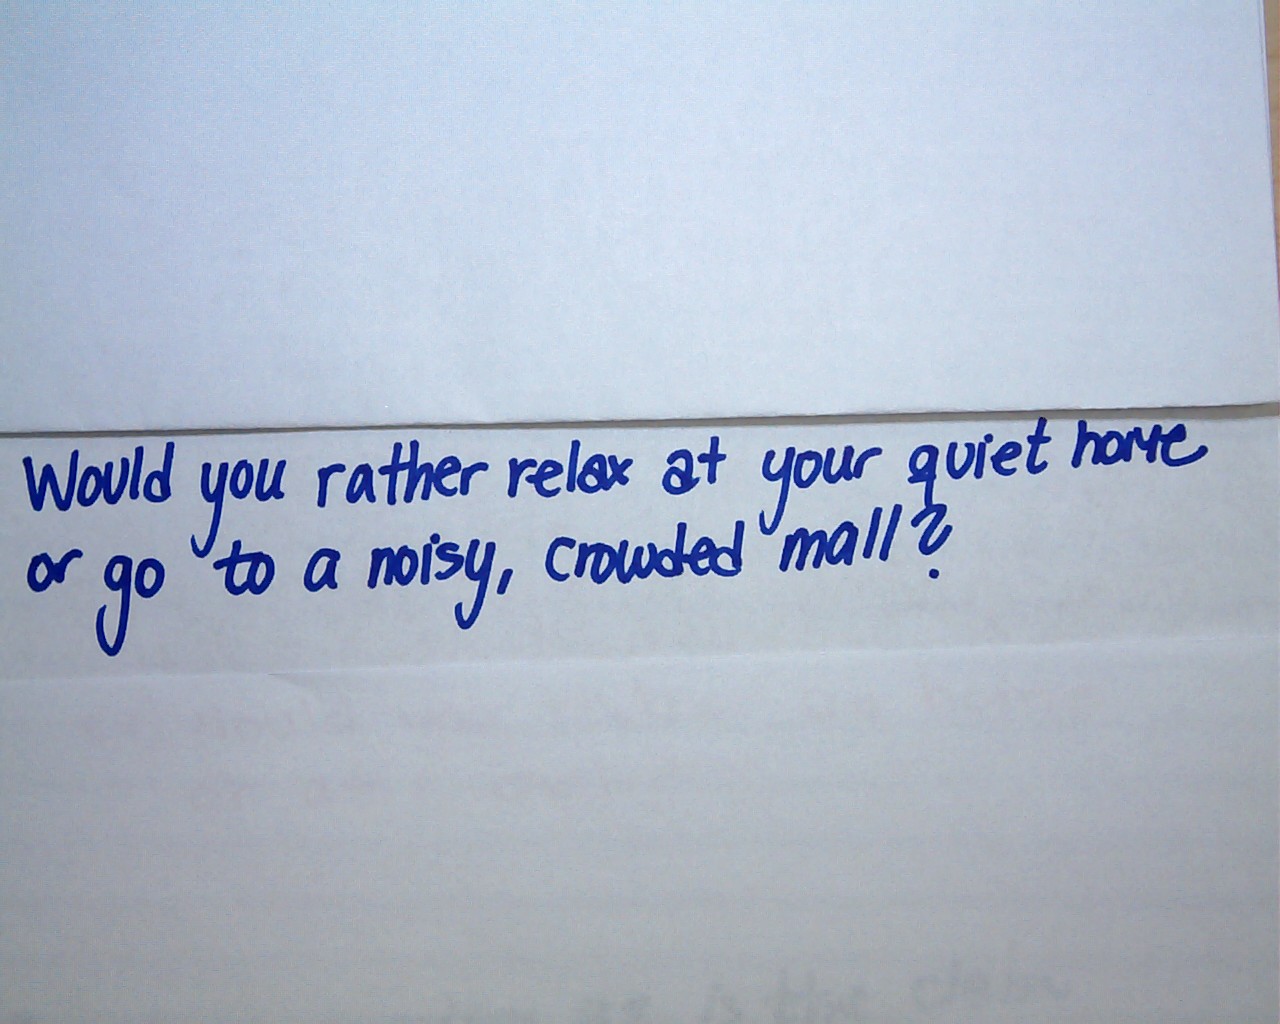 Would you rather relax at your quiet home
or go to a noisy, crowded mall?